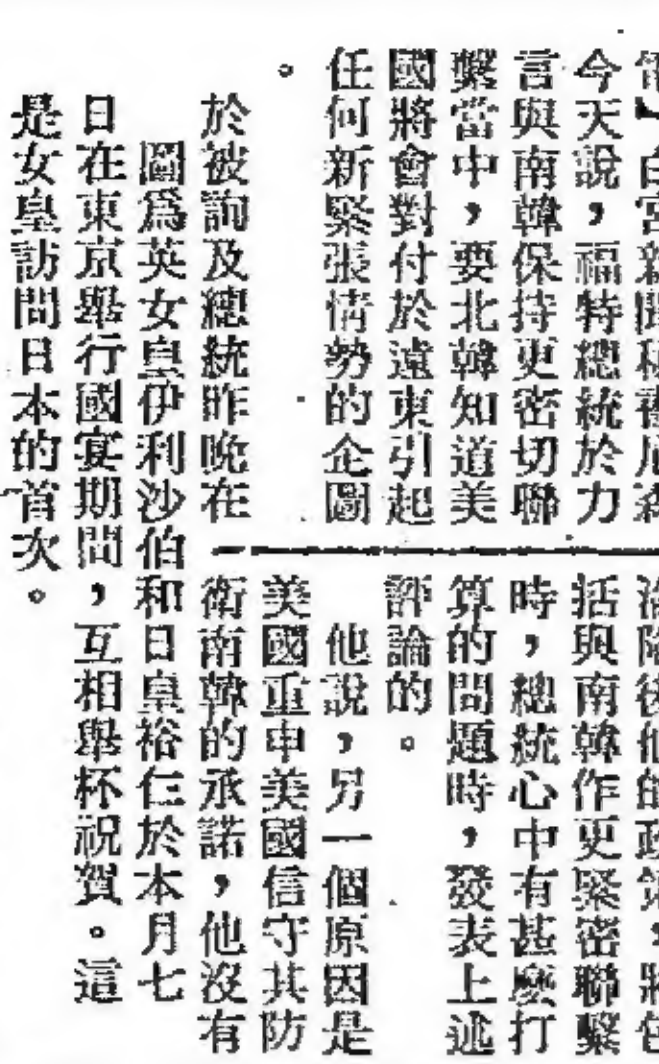 電】白宮新聞秘書尼森
今天說，福特總統於力
言與南韓保持更密切聯
繫當中，要北韓知道美
國將會對付於遠東引起
任何新緊張情勢的企圖
。
於被詢及總統昨晚在
後他的政策，將包
括與南韓作更緊密聯繫
時，總統心中有甚麼打
算的問題時，發表上述
評論的。
他說，另一個原因是
美國重申美國信守其防
衛南韓的承諾，他沒有
圖爲英女皇伊利沙伯和日皇裕仁於本月七
日在東京舉行國宴期間，互相舉杯祝賀。這
是女皇訪問日本的首次。